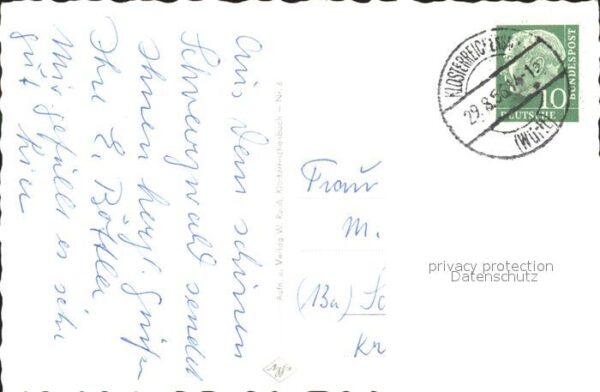 Aus dem schönen
Schwarzwald sendet
Ihnen herzl. Grüße
Ihre E. Böttler
Mir gefällt es sehr
gut hier
Aufn. u. Verlag W. Klosterreichenbach - Nr. 6
Frau
M.
(13a) Sc
Kr
KLOSTERREICHENB
29.8.56
(WÜRTT)
10
DEUTSCHE
BUNDESPOST
privacy protection
Datenschutz